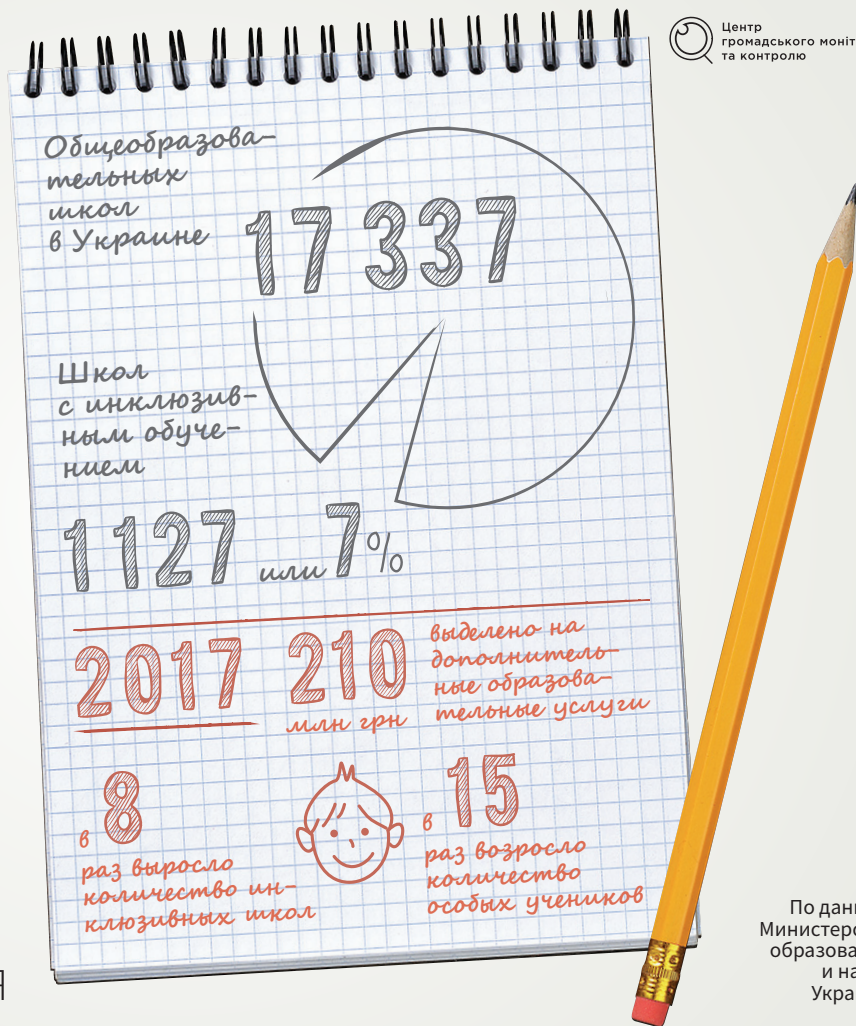 Центр
громадського моніт
та контролю
Общеобразова-
тельных
школ
в Украине
17 337
Школ
с инклюзив-
ным обуче-
нием
1127 или 7%
2017
210
млн грн
выделено на
дополнитель-
ные образова-
тельные услуги
в 8
раз выросло
количество ин-
клюзивных школ
в 15
раз возросло
количество
особых учеников
По дан
Министерс
образова
и на
Укра